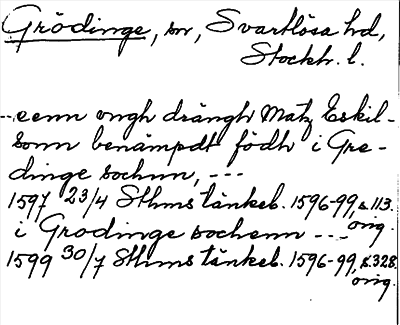 Grödinge, sn, Svartlösa hd,
Stockh. l.
--eenn ungh drängh Matz Eskil-
sonn benämpdt födh i Gre-
dinge sochnn, ---
1597 23/4 Sthms tänkeb. 1596-99, s. 113.
orig.
i Grodinge sochenn ---
1599 30/7 Sthms tänkeb. 1596-99, s. 328.
orig.